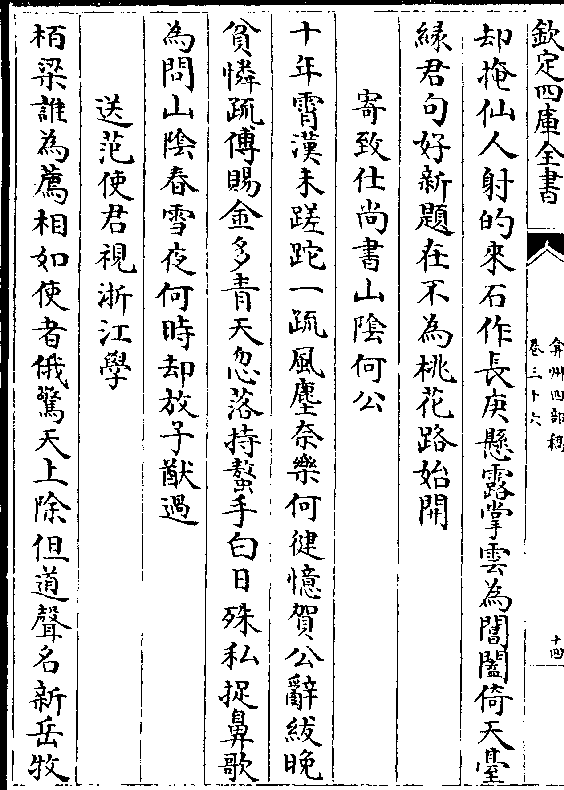 欽定四庫全書
弇州四部稿
卷三十六
十四
却掩仙人射的來石作長庚懸露掌雲為閶闔倚天臺
緑君句好新題在不為桃花路始開
寄致仕尚書山陰何公
十年霄漢未蹉跎一疏風塵奈樂何徤憶賀公辭紱晚
貧憐疏傅賜金多青天忽落持螯手白日殊私捉鼻歌
為問山陰春雪夜何時却放子猷過
送范使君視浙江學
栢梁誰為薦相如使者俄驚天上除但道聲名新岳牧